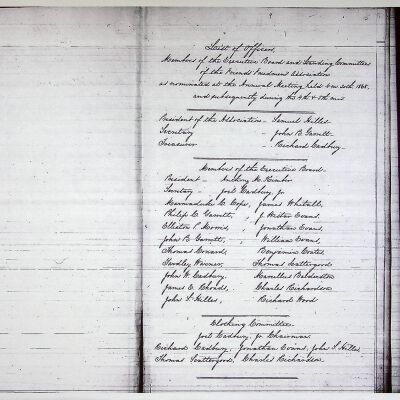 List of Officers,
Members of the Executive Board and Standing Committees
of the Friends Freedmen Association
as nominated at the Annual Meeting held 4 mo 20th 1868,
and subsequently during the 4th & 5th mos
President of the Association - Samuel Hilles
Secretary - John B. Garrett
Treasurer - Richard Cadbury
Members of the Executive Board
President - M. Kimber
Secretary - Joel Cadbury Jr
Marmaduke C. Cope, James Whitall,
Philip C. Garrett, J. Wistar Evans,
Elliston P. Morris, Jonathan Evans,
John B. Garrett, William Evans,
Thomas Conard Benjamin Coates
Yardley Warner, Thomas Scattergood
John W. Cadbury, Marcellus Balderston
James E. Rhoads, Charles Richardson
John S. Hilles, Richard Wood
Clothing Committee
Joel Cadbury, Jr Chairman
Richard Cadbury, Jonathan Evans, John S. Hilles
Thomas Scattergood, Charles Richardson